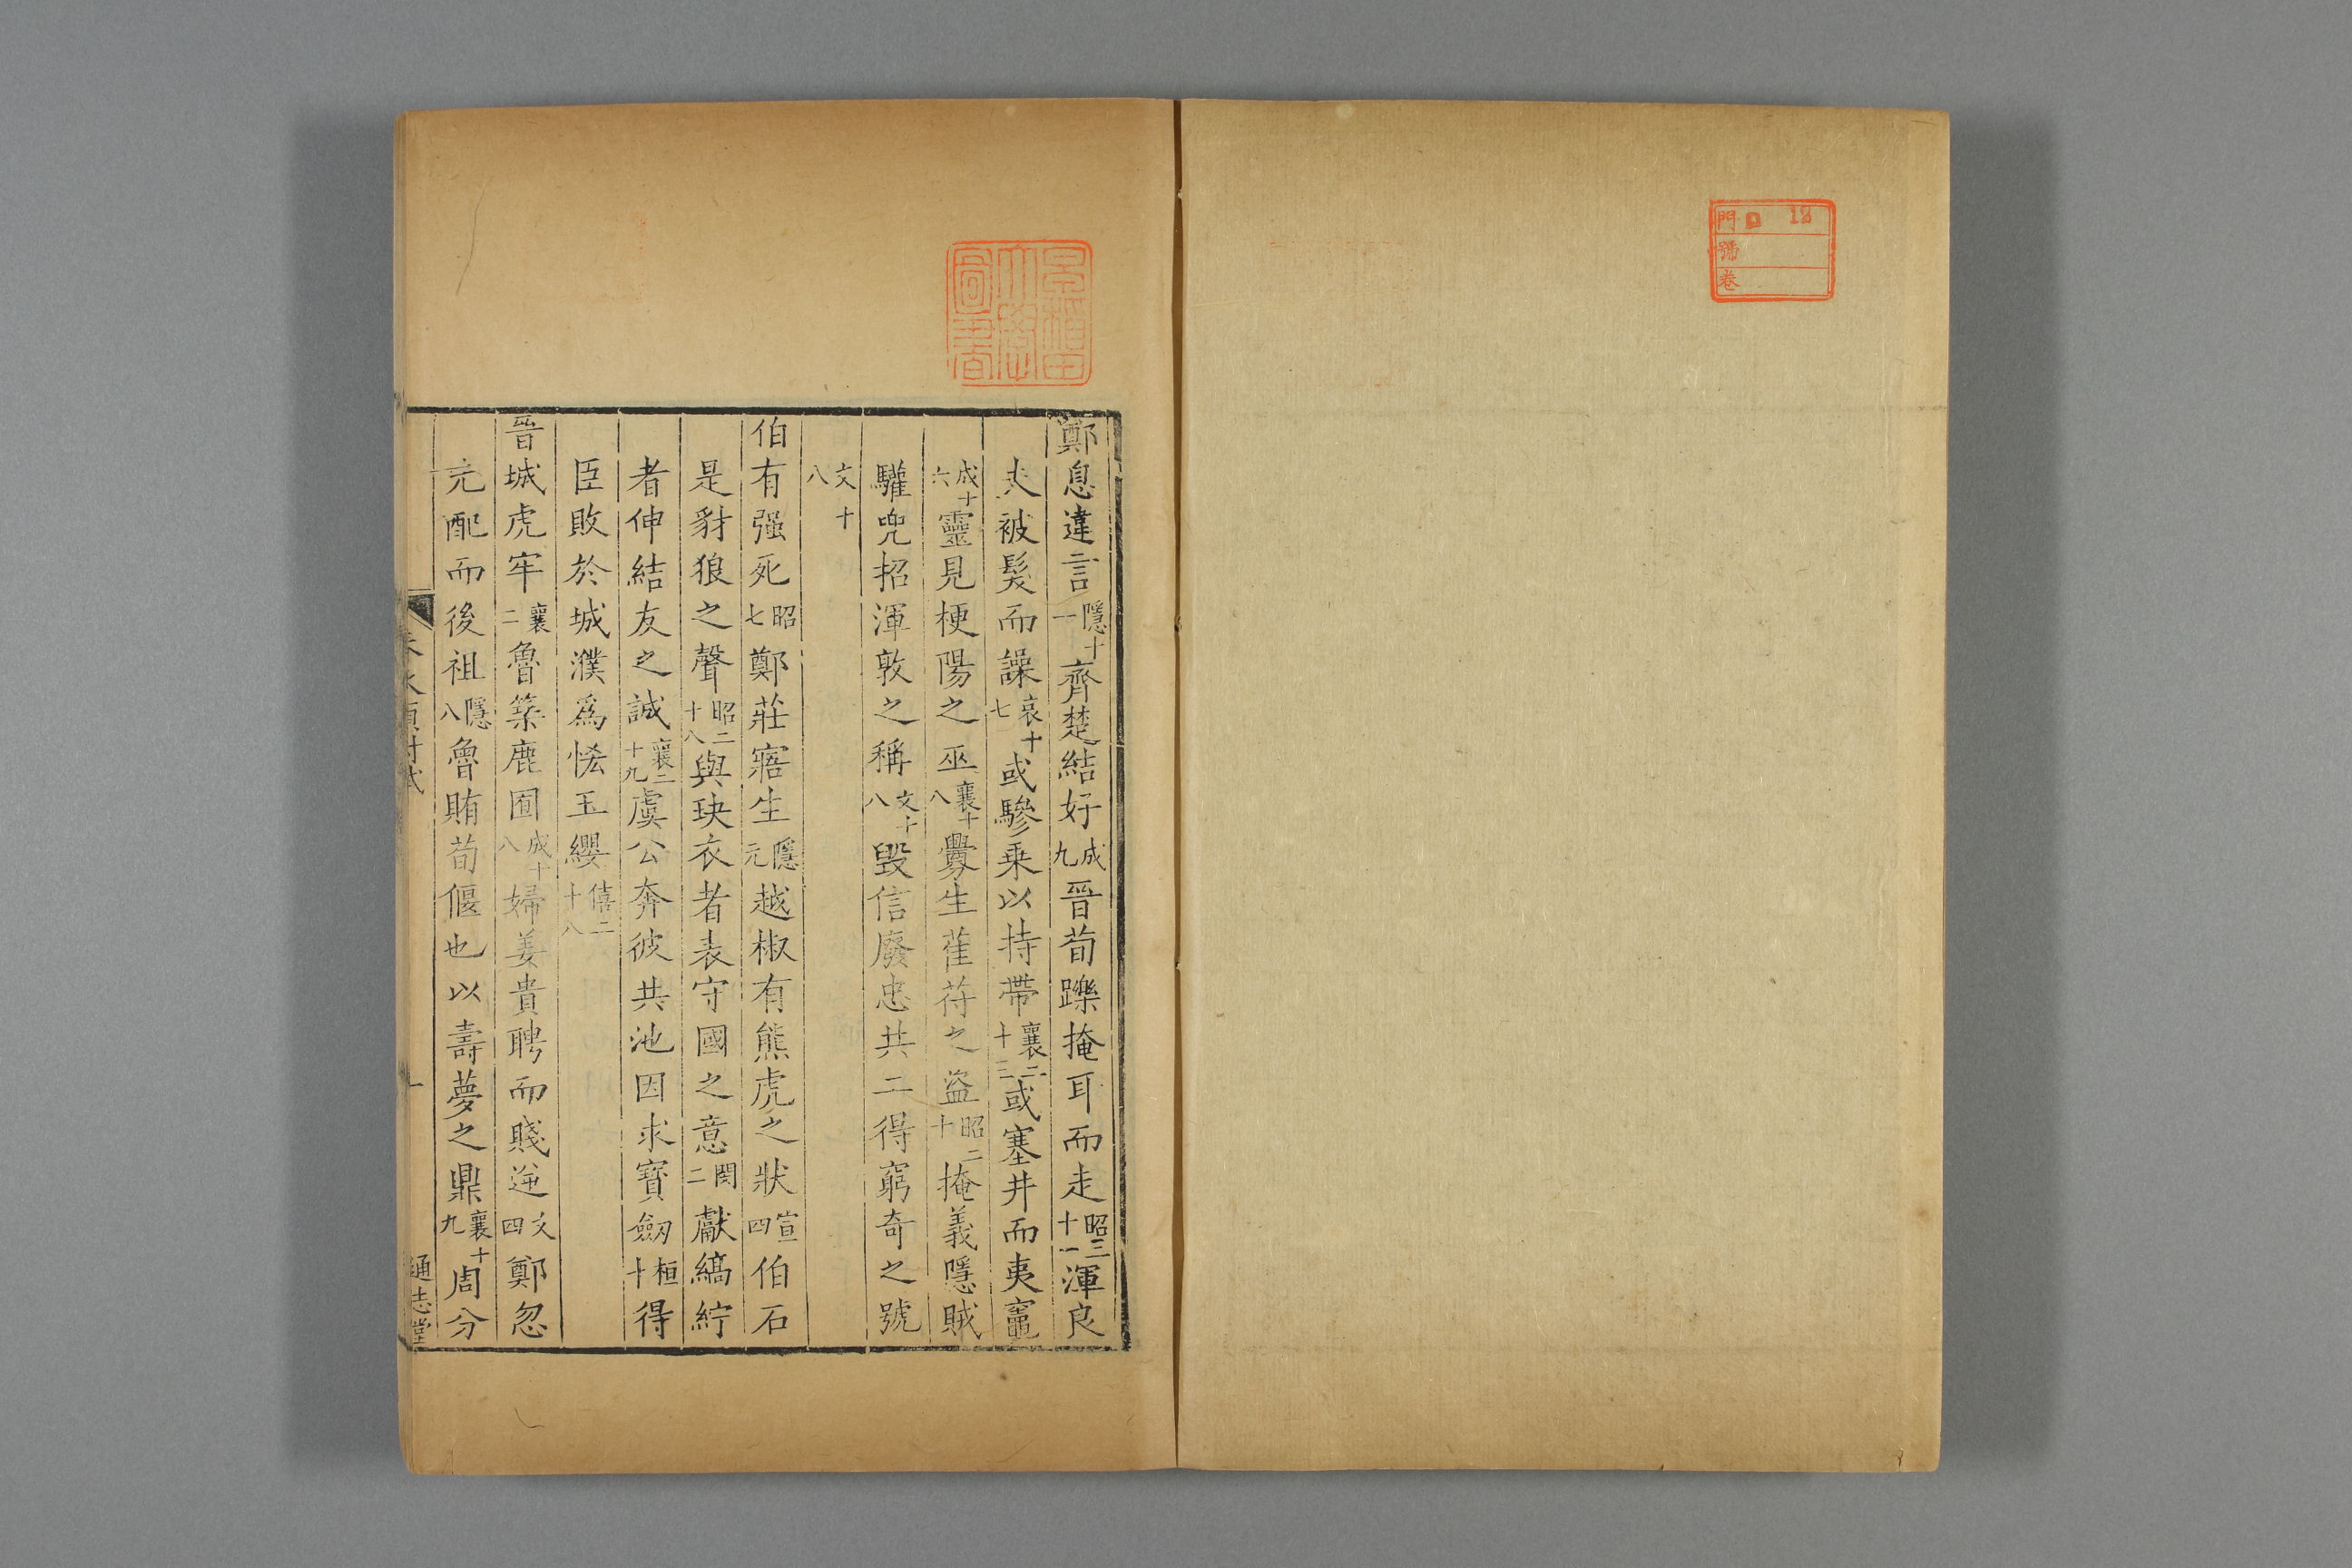 門 12
號
卷
早稻田大學圖書
鄭息違言隱十一齊楚結好成九晉荀躒掩耳而走昭三十一渾良
夫被髮而譟哀十七或驂乗以持帶襄二十三或塞井而夷竈
成十六靈見梗陽之巫襄十八釁生萑苻之盜昭二十掩義隱賊
驩兜招渾敦之稱文十八毀信廢忠共工得窮奇之號
文十八
伯有强死昭七鄭莊寤生隱元越椒有熊虎之狀宣四伯石
是豺狼之聲昭二十八與玦衣者表守國之意閔二獻縞紵
者伸結友之誠襄二十九虞公奔彼共池因求寳劒桓十得
臣敗於城濮爲恡玉纓僖二十八
晉城虎牢襄二魯築鹿囿成十八婦姜貴聘而賤逆文四鄭忽
先配而後祖隱八魯賄荀偃也以壽夢之鼎襄十九周分
一
通志堂